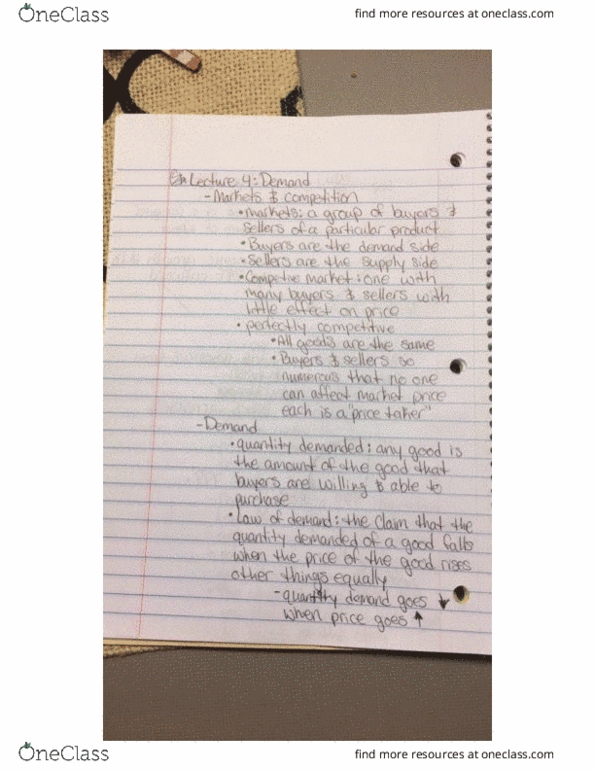 OneClass
find more resources at oneclass.com
Lecture 4: Demand
- Markets & competition
• markets: a group of buyers &
sellers of a particular product
• Buyers are the demand side
• sellers are the supply side
• Competive market: one with
many buyers & sellers with
little effect on price
• perfectly competitive
• All goods are the same
• Buyers & sellers so
numerous that no one
can affect market price
each is a "price taker"
- Demand
• quantity demanded: any good is
the amount of the good that
buyers are willing & able to
purchase
• Law of demand: the claim that the
quantity demanded of a good falls
when the price of the good rises
other things equally
- quantity demand goes ↓
when price goes ↑
OneClass
find more resources at oneclass.com